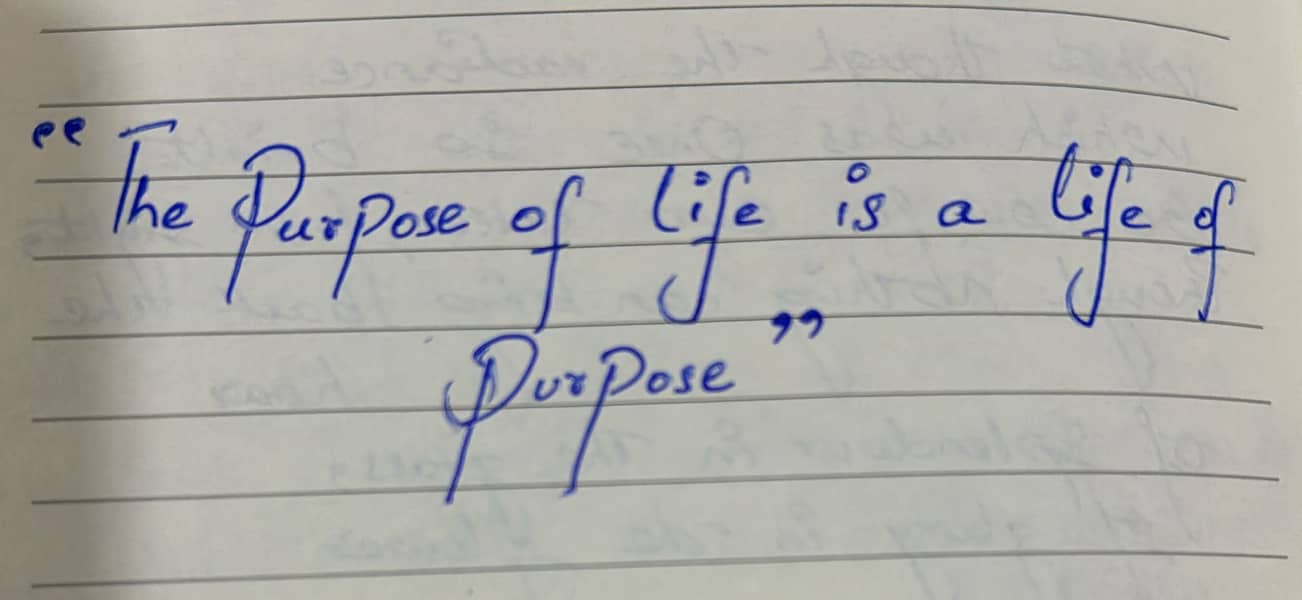 “The Purpose of life is a life of
Purpose”